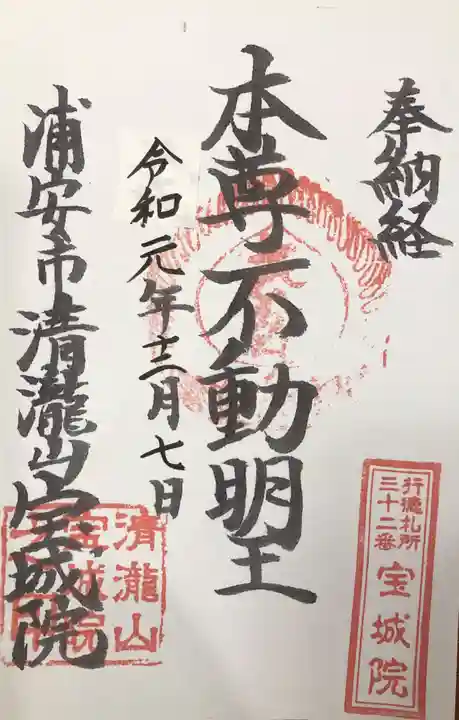 奉納経
本尊不動明王
令和元年十二月七日
浦安市清瀧山宝城院
行徳札所
三十二番
宝城院
清瀧山
宝城院